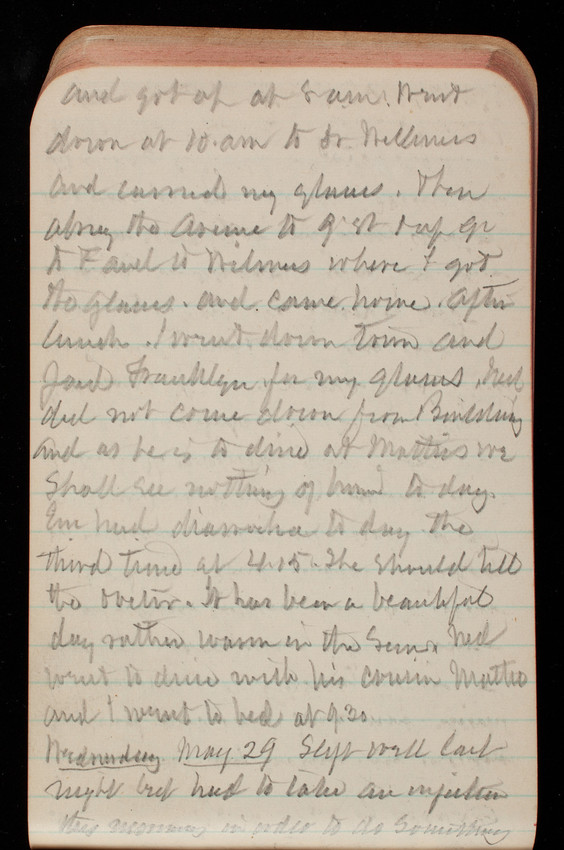 and got up at 8 am. Went
down at 10.am to Dr Wilmers
and carried my glasses. Then
along the Avenue to 9 St & up 9
to F and to Wilmers where I got
the glasses. and came home. After
lunch. I went down town and
paid Franklyn for my glasses. Ned
did not come down from Building
and as he is to dine at Matties we
shall see nothing of him to day.
Em had diarrohea to day the
third time at 4.15. She should tell
the Doctor. It has been a beautiful
day rather warm in the Sun. Ned
went to dine with his cousin Mattie
and I went to bed at 9.30
Wednesday May 29 Slept well last
night but had to take an injection
this morning in order to do something